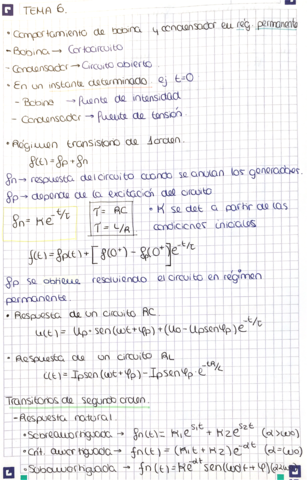 TEMA 6.
• Comportamiento de bobina y condensador en reg. permanente
- Bobina → Cortocircuito
- Condensador → Circuito abierto
• En un instante determinado ej t=0
- Bobina → Fuente de intensidad
- Condensador → Fuente de tensión
• Régimen transitorio de 1 orden.
f(t) = fp + fn
fn → respuesta del circuito cuando se anulan los generadores.
fp → depende de la excitación del circuito
fn = K e^-t/τ
τ = RC
τ = L/R
• K se det a partir de las condiciones iniciales
f(t) = fp(t) + [f(0⁺) - fp(0⁺)] e^-t/τ
fp se obtiene resolviendo el circuito en régimen
permanente.
• Respuesta de un circuito RC.
u(t) = Up · sen(ωt + φp) + (U0 - Up sen φp) e^-t/τ
• Respuesta de un circuito RL
i(t) = Ip sen(ωt + φp) - Ip sen φp e^-tR/L
Transitorios de segundo orden.
- Respuesta natural
• Sobreamortiguada → fn(t) = K1 e^s1t + K2 e^s2t (α>ω0)
• Crit. amortiguada → fn(t) = (K1 t + K2) e^-αt (α=ω0)
• Subamortiguada → fn(t) = K e^-αt sen(ωdt + φ) (α<ω0)